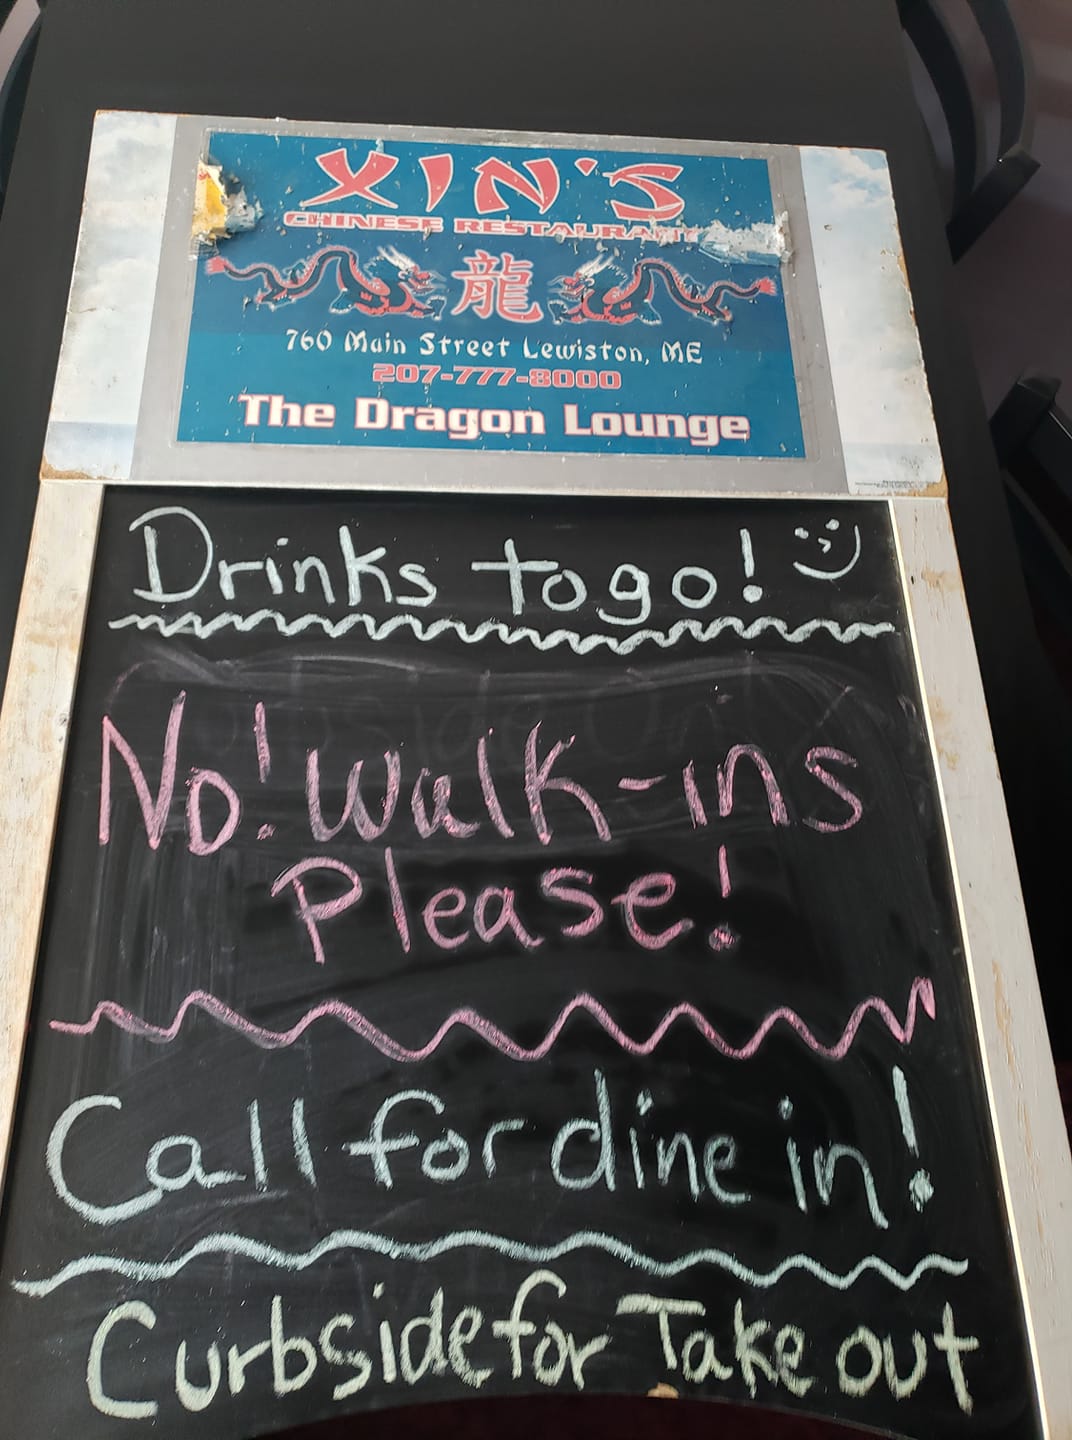 XIN'S
CHINESE RESTAURANT
龍
760 Main Street Lewiston, ME
207-777-8000
The Dragon Lounge
Drinks to go!
No! Walk-ins
Please!
Call for dine in!
Curbside for Take out